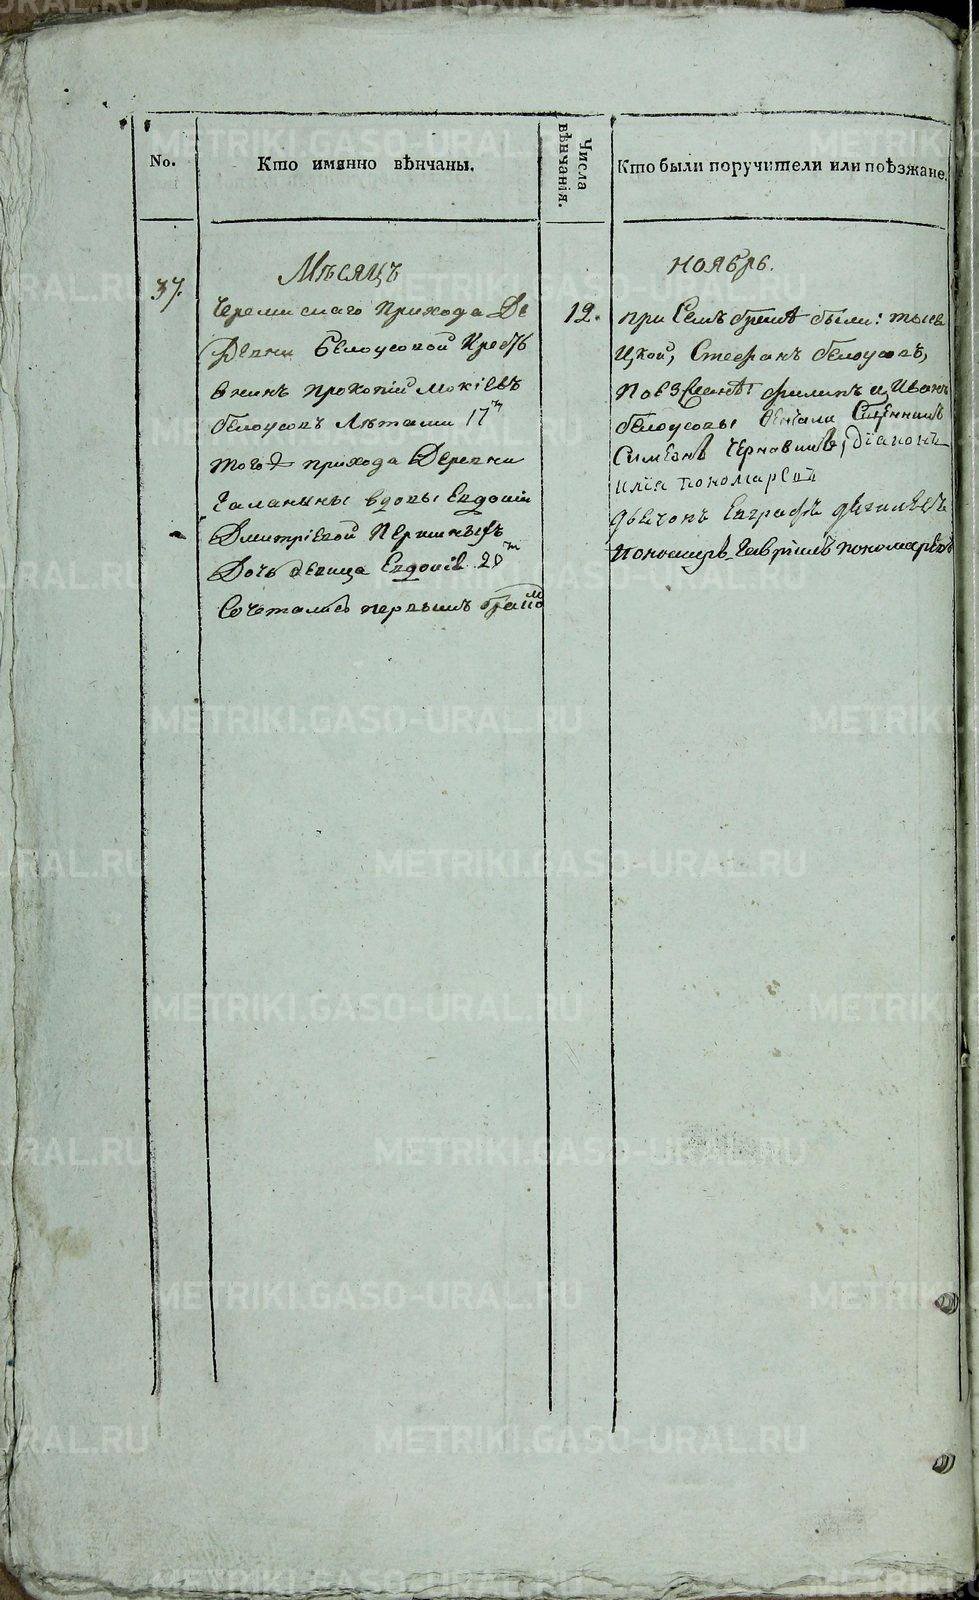 No.
Кто имянно вѣнчаны.
Числа вѣнчанія.
Кто были поручители или поѣзжане.
Мѣсяцъ
ноябрь.
37.
Черемискаго прихода Де
Ревни Белоусовой Крестъ
янинъ прокопій Мокіевъ
белоусовъ Лѣтами 17
того прихода Деревни
Галанины вдовы Евдокіи
Дмитріевой Першиныхъ
Дочь девица Евдокія 20
Сочетались первымъ бракомъ
12.
при Семъ браке были: тысе
Цкой, Стефанъ белоусовъ,
поезжане: филипъ и Иванъ
белоусовы венчали Сщенникъ
Симеонъ Чернавинъ, діаконъ
илїа пономаревъ
дьячокъ Евграфъ
пономарь гавріилъ пономаревъ
METRIKI.GASO-URAL.RU